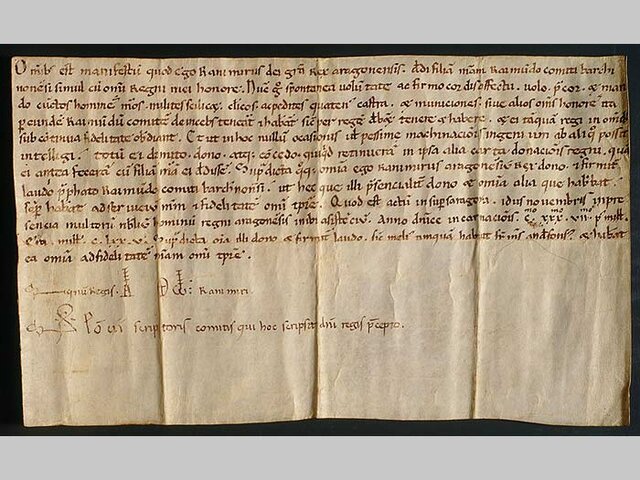 Omib; est manifestũ quod ego Ranimirus dei grã Rex aragonensis. dedi filiã meam Raimũdo comiti barchi
nonẽsi simul cũ omĩ Regni mei honore. Nũc g̊ spontanea volũtate ac firmo cordis affectu. volo. p̃cor. & man
do cũctos homines meos. milites clicos. ac pedites quaten castra. & municiones. sive alios oms̃ honores ita
p eundẽ Raimũdũ comitẽ deinceps teneant & habeãt sic̃ per regẽ debẽt tenere & habere. & ei tãquã regi in omib;
sub continua fidelitate obediant. Et ut in hoc nullũ occasionis ul pessime machinacionis ingeniũ ab aliq̊ possit
intelligi. totũ ei dimito. dono. atq; cõcedo. quicq̃d retinuerã in ipsa alia carta donacionis regni. quã
ei antea fecerã cũ filiã meã ei dedisse. Sup̃dicta q̃q; omia ego Ranimirus aragonẽsiũ Rex dono & firmit̃
laudo p̃phato Raimũdo comiti barchinonẽsi. ut hec que illi p̃sencialit̃ dono & omia alia que habebat.
sẽp habeat ad serviciũ meũ & fidelitatẽ omi tp̃re. Quod est actũ in sup̃ Saragoza. idus novembris in pre
sencia multorũ nobiliũ hominũ regni aragonẽsis inibi asistẽciũ. Anno dñice incarnacionis. C. XXX. VII. p̃ mill.
Era mill. c. lxx. v. Sup̃dicta oĩa illi dono & firmit̃ laudo. sic̃ meli unquã habuit fr̃ ms̃ ildefons; & habeat
ea omia ad fidelitatẽ meam omi tp̃re.
Signũ Regis Ranimiri.
Sig Põcii scriptoris comitis qui hoc scripsit dñi regis p̃cepto.